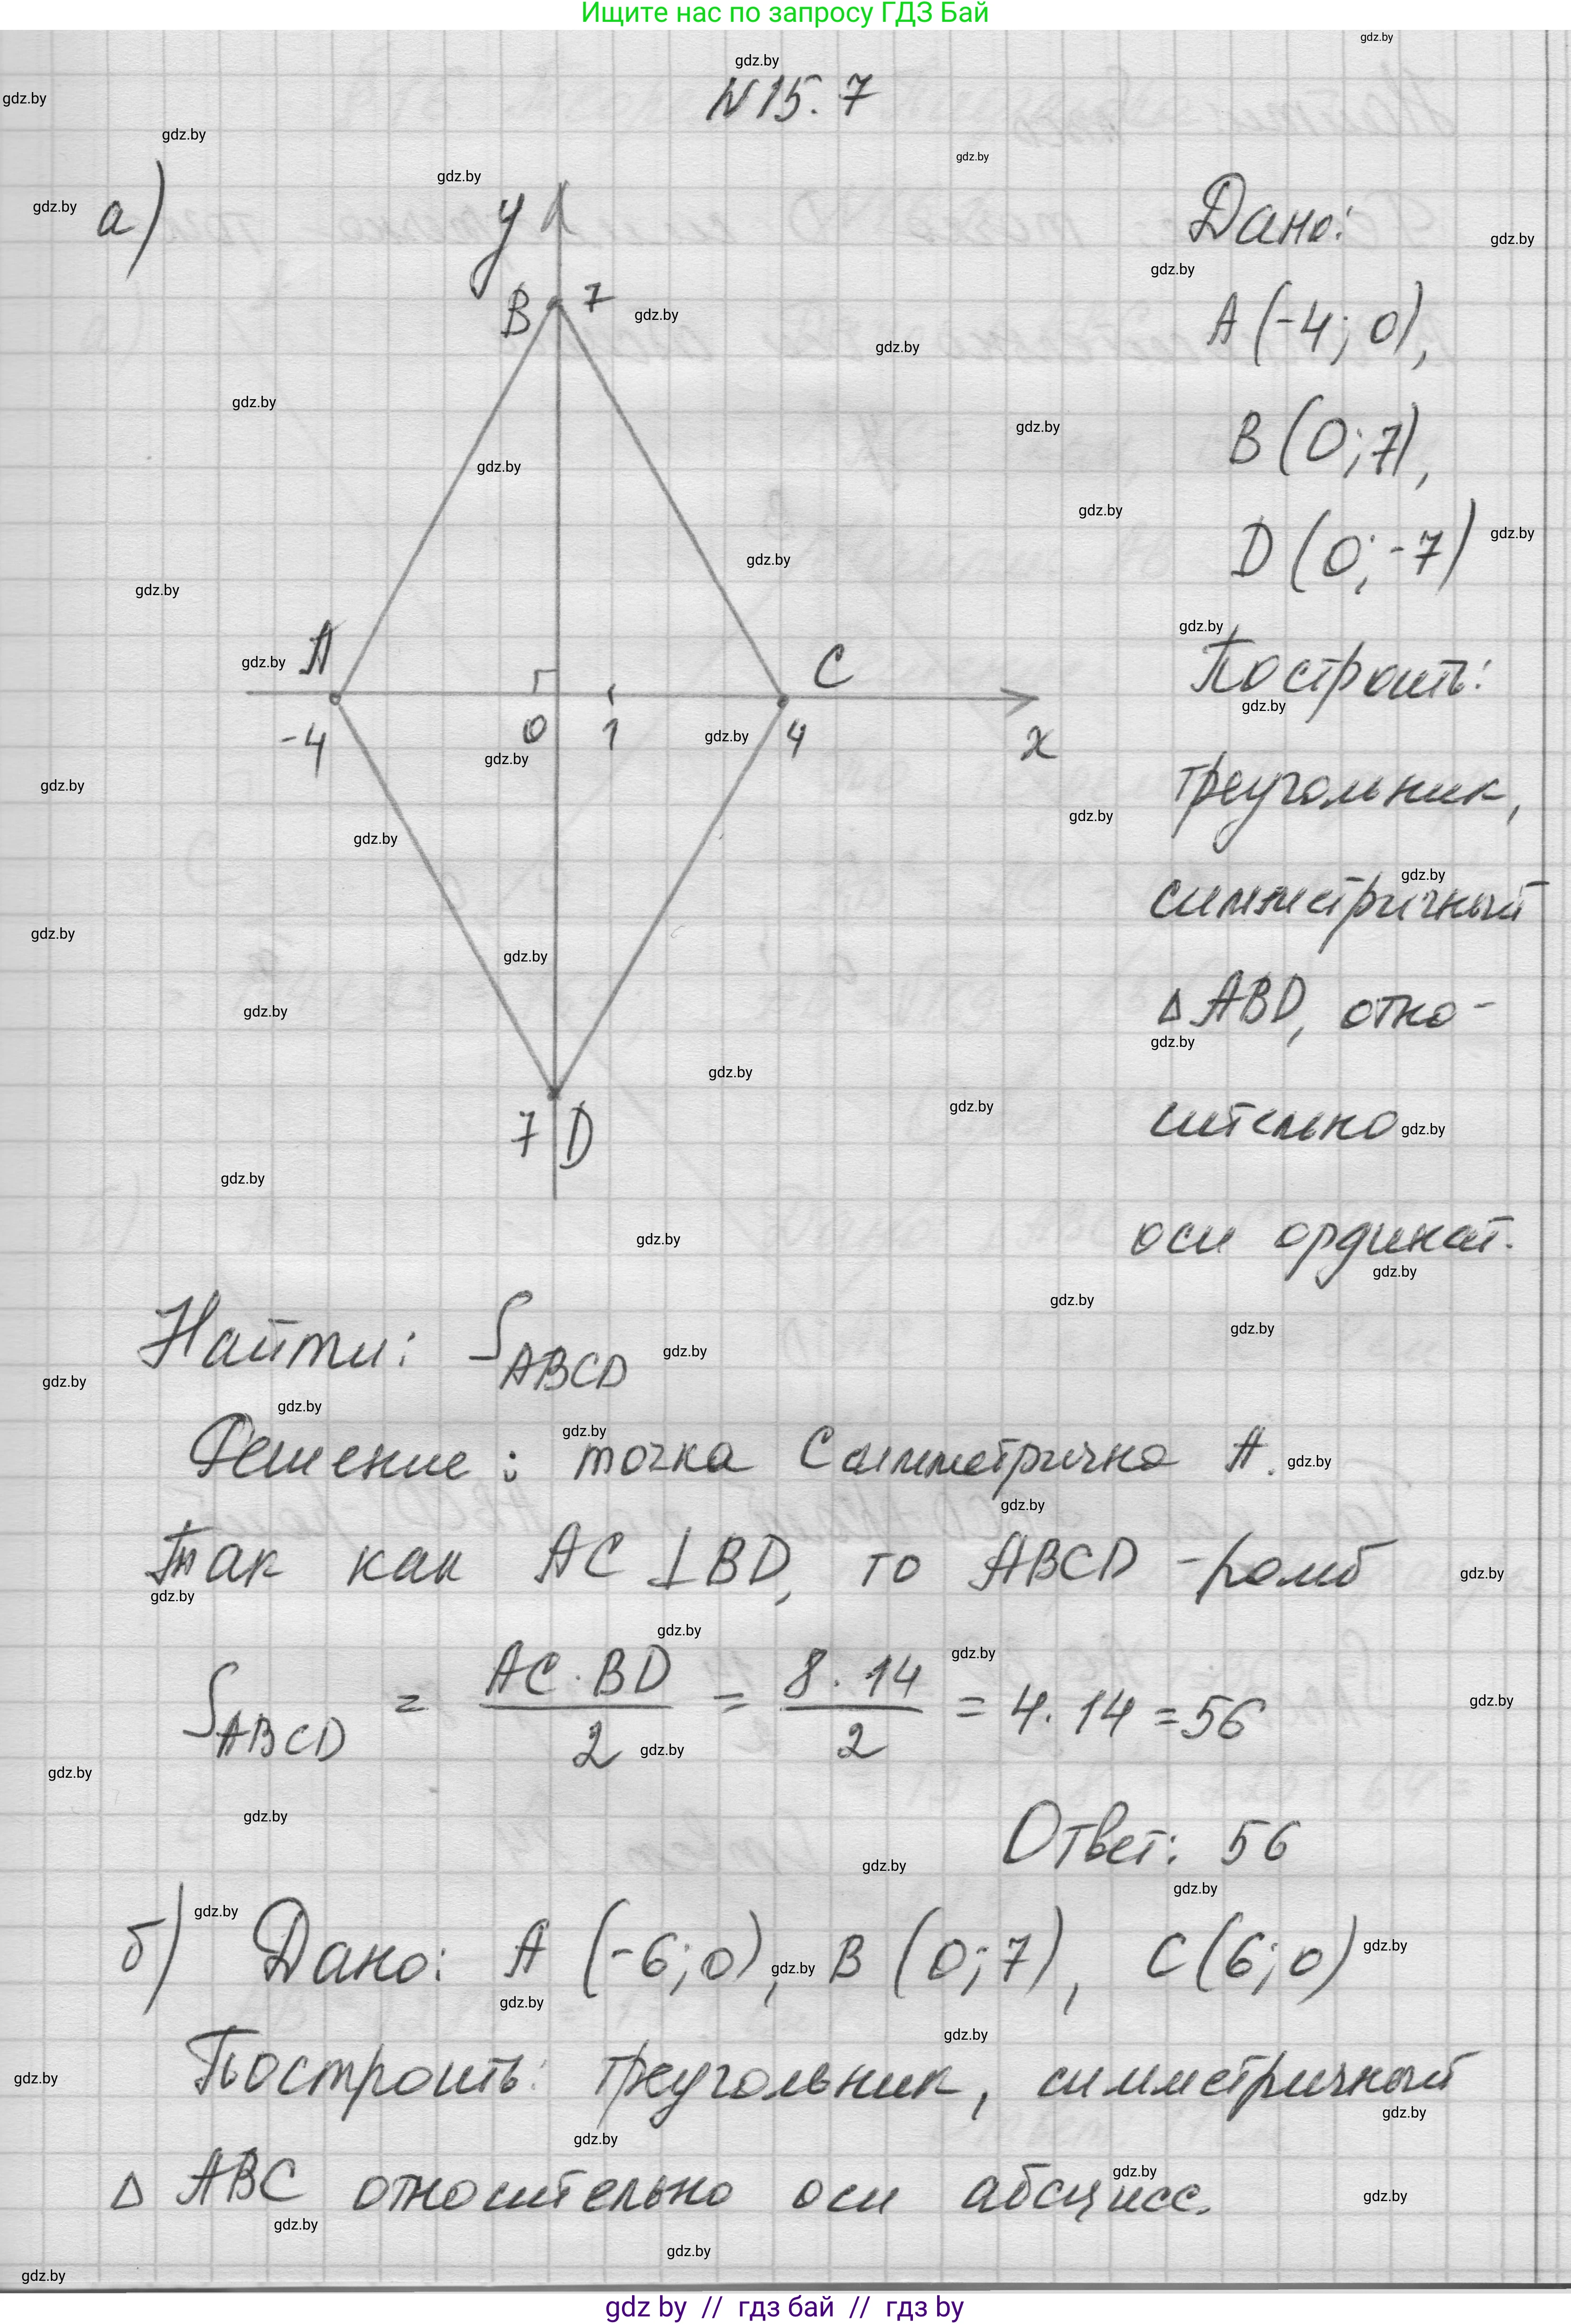 Ищите нас по запросу ГДЗ Бай
N 15.7
а)
Дано:
A (-4; 0),
B (0; 7),
D (0; -7)
Построить:
треугольник,
симметричный
Δ ABD, отно-
сительно
оси ординат.
y
B 7
A
C
-4
0
1
4
x
7 D
Найти: S ABCD
Решение: точка C симметрична A.
Так как AC ⊥ BD, то ABCD - ромб
S ABCD = AC · BD / 2 = 8 · 14 / 2 = 4 · 14 = 56
Ответ: 56
б) Дано: A (-6; 0), B (0; 7), C (6; 0)
Построить: треугольник, симметричный
Δ ABC относительно оси абсцисс.
gdz by // гдз бай // гдз by